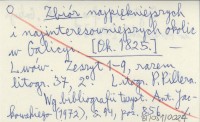 Zbiór najpiękniejszych
i najinteresowniejszych okolic
w Galicyi. [Ok. 1825.] —
Lwów. Zeszyt 1-9, razem
litogr. 37, 2°. Litogr. P. Pillera.
Wg bibliografii twpt. Ant. Jac-
kowskiego (1972), s. 94, poz. 856